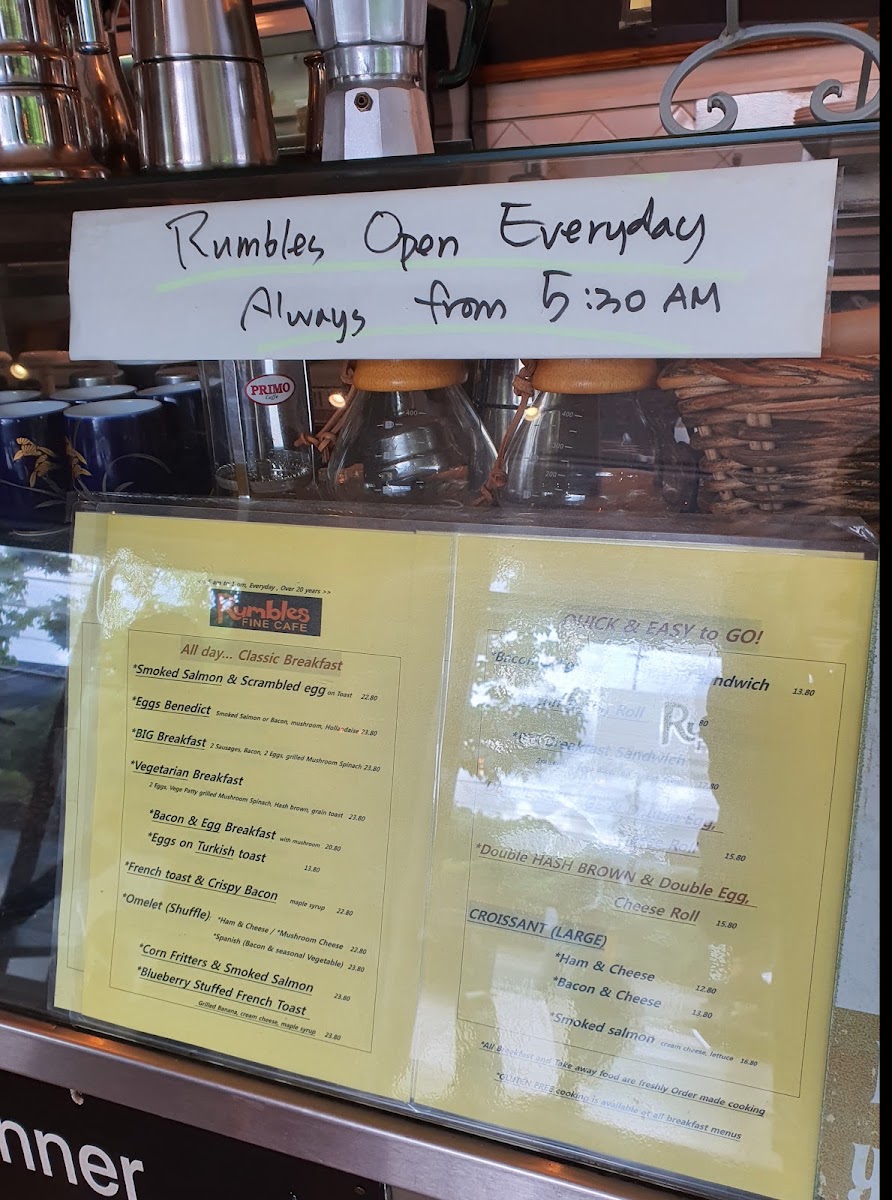 Rumbles Open Everyday
Always from 5:30 AM
PRIMO
Caffe
400
400
300
200
Everyday, Over 20 years >>
Rumbles
FINE CAFE
All day... Classic Breakfast
*Smoked Salmon & Scrambled egg on Toast 22.80
*Eggs Benedict Smoked Salmon or Bacon, mushroom, Hollandaise 23.80
*BIG Breakfast 2 Sausages, Bacon, 2 Eggs, grilled Mushroom Spinach 23.80
*Vegetarian Breakfast
2 Eggs, Vege Patty grilled Mushroom Spinach, Hash brown, grain toast 23.80
*Bacon & Egg Breakfast with mushroom 20.80
*Eggs on Turkish toast
13.80
*French toast & Crispy Bacon maple syrup 22.80
*Omelet (Shuffle) *Ham & Cheese / *Mushroom Cheese 22.80
*Spanish (Bacon & seasonal Vegetable) 23.80
*Corn Fritters & Smoked Salmon 23.80
*Blueberry Stuffed French Toast
Grilled Banana, cream cheese, maple syrup 23.80
QUICK & EASY to GO!
*Bacon Sandwich 13.80
Roll
Breakfast Sandwich
Egg,
Roll 15.80
*Double HASH BROWN & Double Egg,
Cheese Roll 15.80
CROISSANT (LARGE)
*Ham & Cheese 12.80
*Bacon & Cheese 13.80
*Smoked salmon cream cheese, lettuce 16.80
*All Breakfast and Take away food are freshly Order made cooking
*GLUTEN FREE cooking is available at all breakfast menus
nner